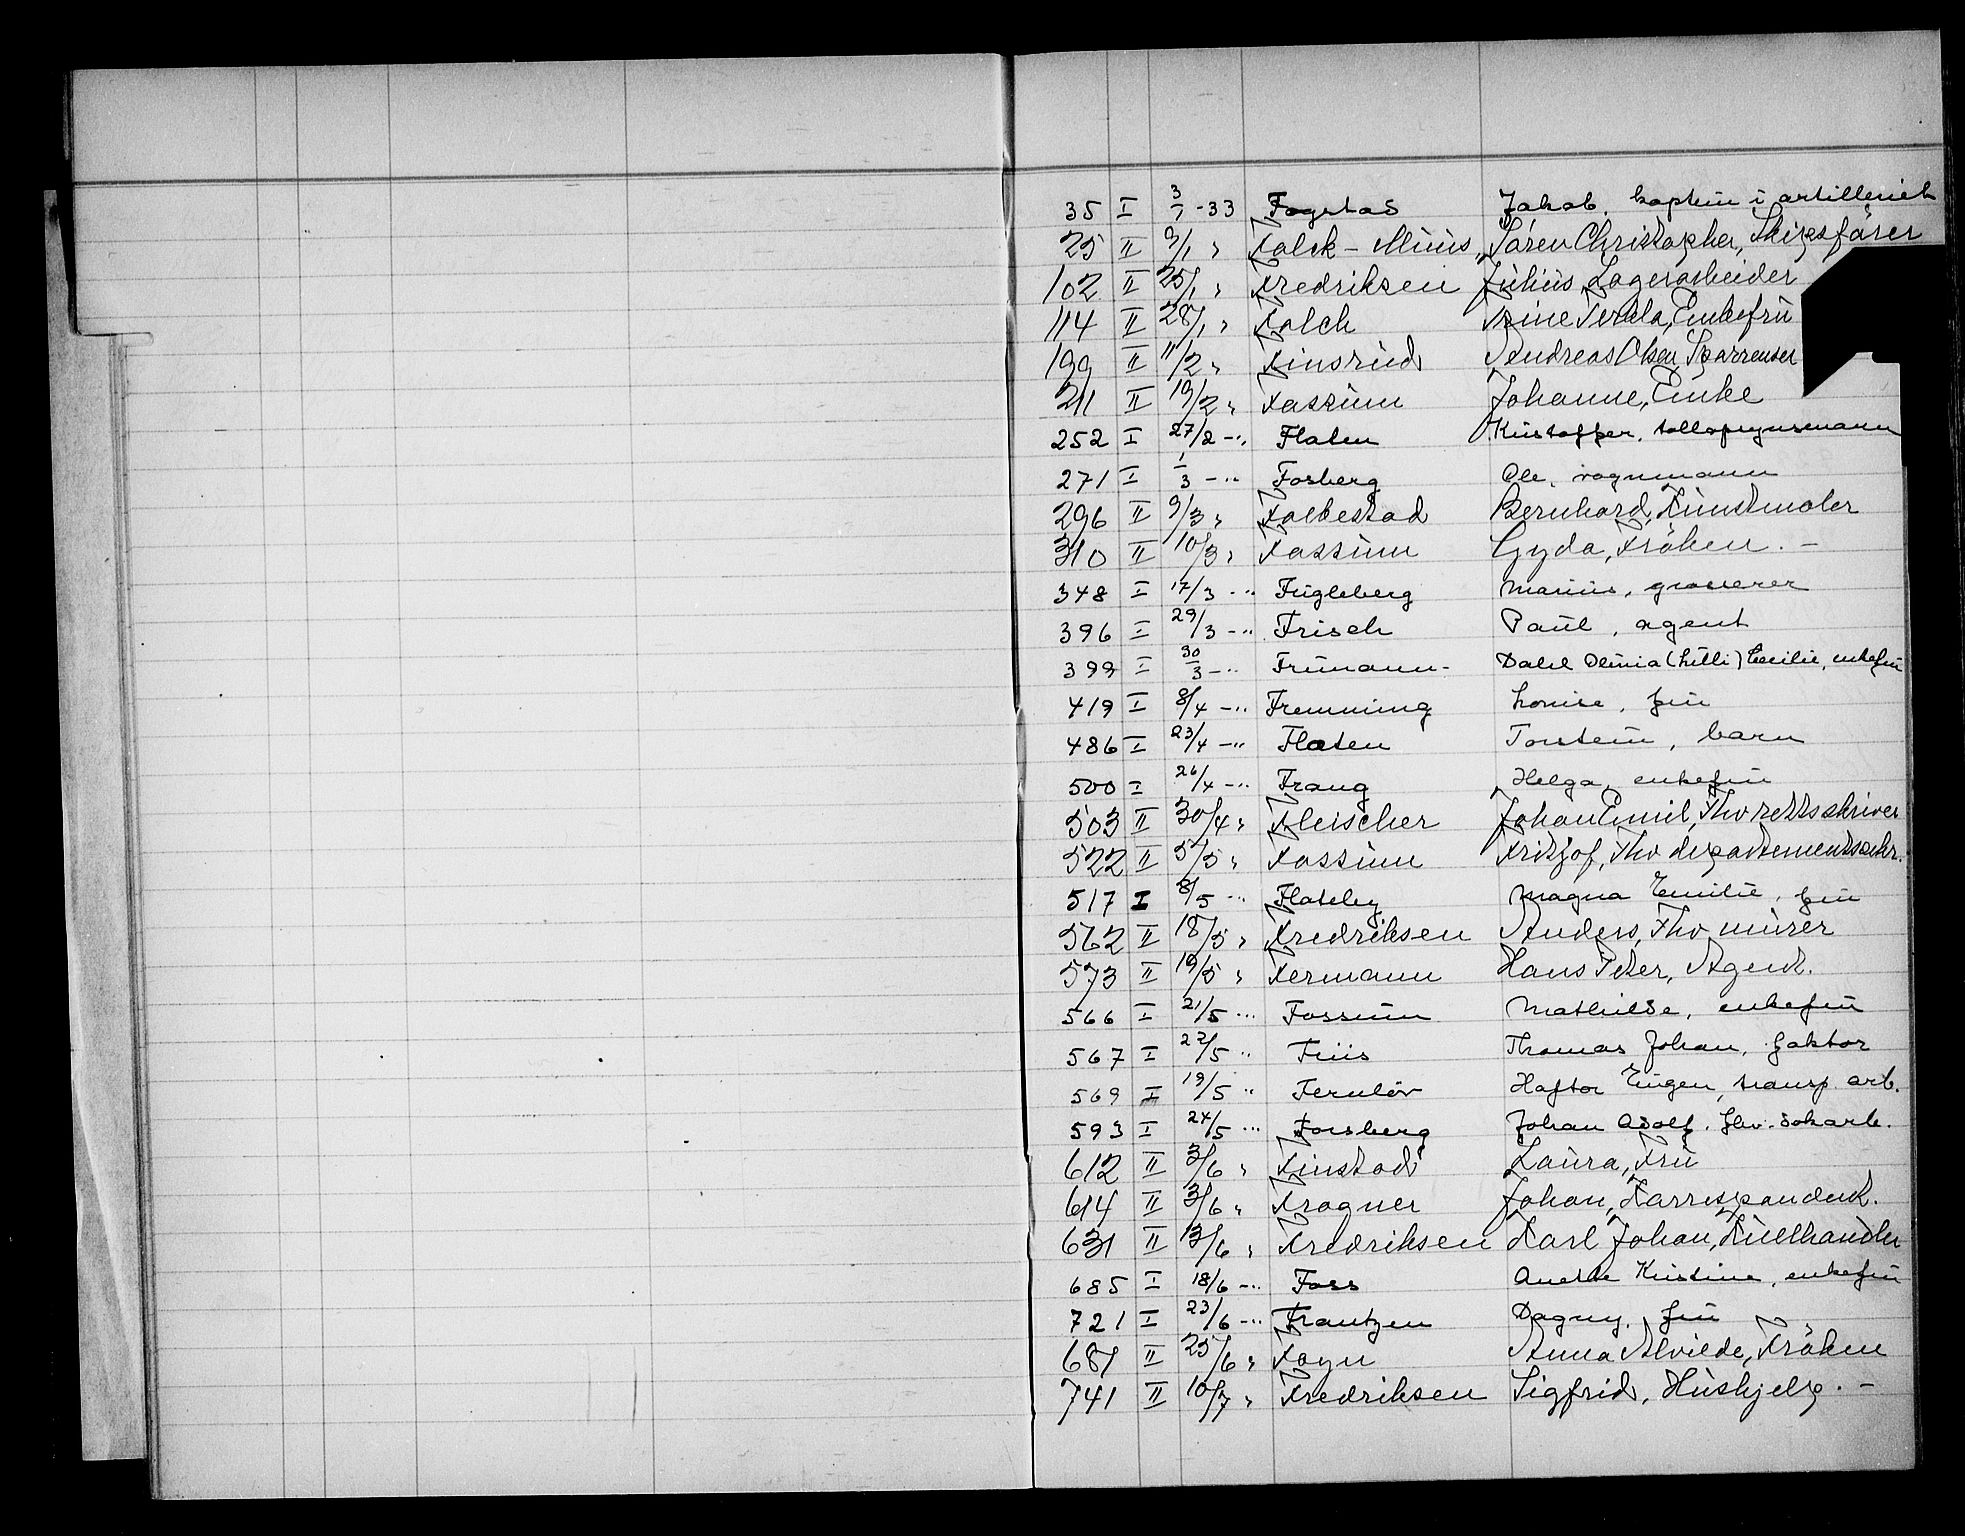 35 I 3/1 -33 Fagstad Jakob, kaptein i artilleriet
25 II 9/1 " Falck-Muus, Sören Christopher, Skipsförer
102 II 25/1 " Fredriksen Julius Lagerarbeider
114 II 28/1 " Falch Trine Terkla, Enkefru
199 II 11/2 " Finsrud Andreas Olsen,
211 II 19/2 " Fossum Johanne, Enke
252 I 27/2 -"- Flaten Kristoffer, tollopsynsmann
271 I 1/3 -"- Fosberg Ole, vognmann
296 II 9/3 " Folkestad Bernhard, Kunstmaler
310 II 10/3 " Fossum Gyda, Fröken. -
348 I 17/3 -"- Fugleberg Marius, grosserer
396 I 29/3 -"- Frisch Paul, agent
399 I 30/3 -"- Frumann- Dahl Olivia (Lilli) Cecilie, enkefru
419 I 8/4 -"- Fremming Louise, fru
486 I 23/4 -"- Flaten Torstein, barn
500 I 26/4 -"- Frang Helga, enkefru
503 II 30/4 " Fleischer Johan Emil, Fhv rettsskriver
522 II 5/5 " Fossum Fritjof, Fhv departementssekr.
517 I 8/5 " Flateby Magna Emilie, fru
562 II 18/5 " Fredriksen Anders, Fhv murer
573 II 19/5 " Fermann Hans Peter, Agent.
566 I 21/5 -"- Fossum Mathilde, enkefru
567 I 22/5 " Friis Thomas Johan, faktor
569 I 19/5 " Fernlöv Haftor Eugen, transp. arb.
593 I 24/5 -"- Forsberg Johan Adolf, fhv. dokarb.
612 II 3/6 " Finstad Laura, Fru
614 II 3/6 " Fragner Johan, Korrespondent.
631 II 13/6 " Fredriksen Karl Johan, Kullhandler
685 I 18/6 -"- Foss Anethe Kristine, enkefru
721 I 23/6 -"- Frantzen Dagny, fru
687 II 25/6 " Fogn Anna Alvilde, Fröken
741 II 10/7 " Fredriksen Sigfrid, Hushjelp. -